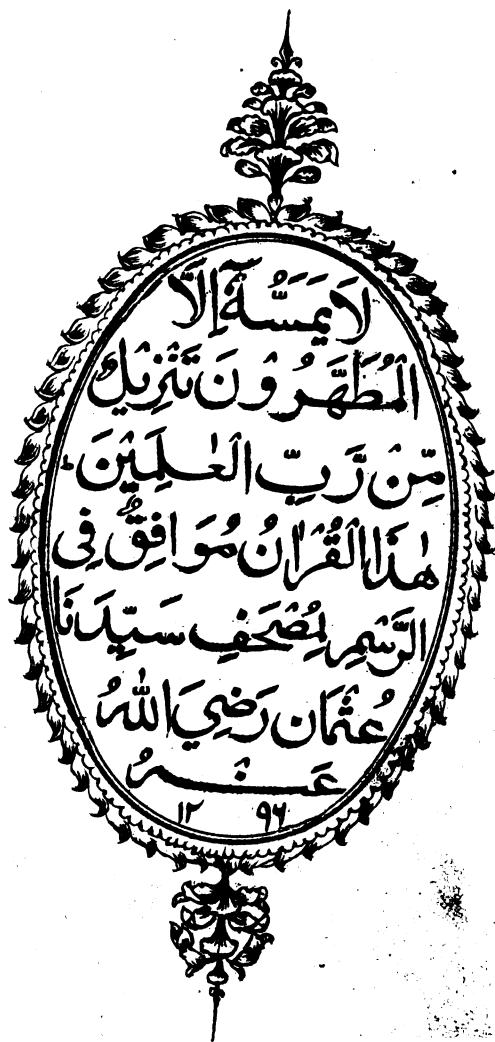 لَا يَمَسُّهٗٓ اِلَّا
الْمُطَهَّرُوْنَ تَنْزِيْلٌ
مِّنْ رَّبِّ الْعٰلَمِيْنَ ؕ
هٰذَا الْقُرْاٰنُ مُوَافِقٌ فِى
الرَّسْمِ لِمُصْحَفِ سَيِّدِنَا
عُثْمَان رَضِيَ اللّٰهُ
عَنْهُ
١٢ ٩٦